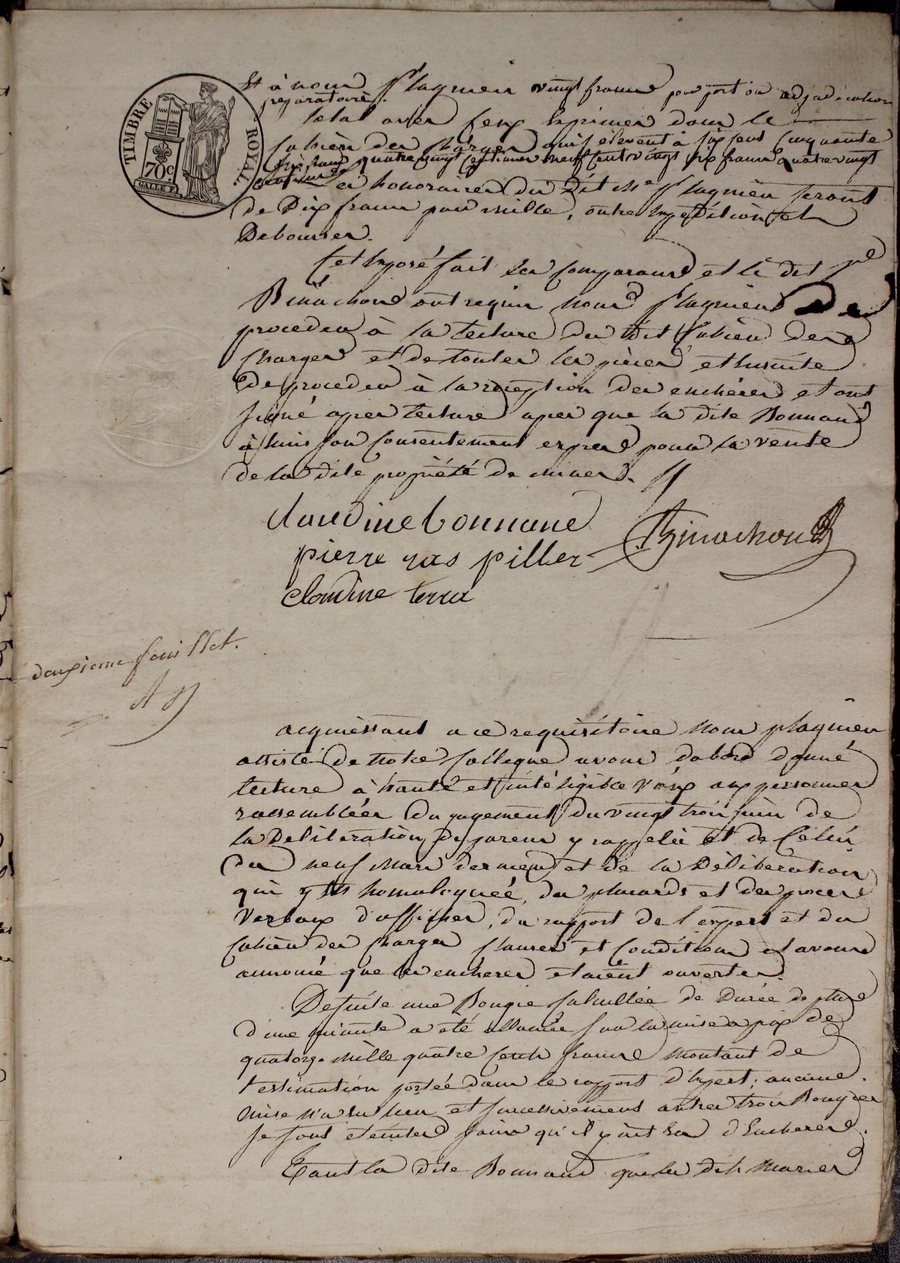 TIMBRE ROYAL
70 c
et à nous Plagnieu vingt francs par port ou adjudication
préparatoire.
Total avec ceux exprimés dans le
Cahier des Charges qui s'élèvent à six cent cinquante
six francs quatre vingt centimes neuf cent vingt six francs quatre vingt
centimes Les honoraires du dit Me Plagnieu seront
de Dix francs pour mille, outre expédition et
Debourser.
Cet exposé fait les comparans et le dit Me
Binachon ont requis nous Plagnieu De
proceder à la lecture du dit Cahier des
Charges et de toutes les pièces et ensuite
De proceder à la reception des enchéres et ont
signé apres lecture apres que la dite Bonnand
a émis son Consentement exprès pour la vente
de la dite propriété de mines.
claudine bonnand
Binachon
pierre ras pillier
claudine terra
deuxieme feuillet.
acquiessant a ce requisitoire Nous plagnieu
assisté de notre Collegue avons dabord donné
lecture à haute et intéligible voix aux personnes
rassemblées du jugement du vingt trois juin de
la Deliberation de parens y rappelée et de Celui
du neuf Mars dernier et de la Déliberation
qui y est homologuée, du placards et des procès
Verbaux d'affiches, du rapport de l'expert et du
Cahier des charges Clauses et Conditions et avons
annoncé que les enchéres etaient ouvertes.
De suite une Bougie Calculée de Durée de plus
d'une minute a été allumée sur la mise a prix de
quatorze mille quatre cents francs montant de
l'estimation portée dans le rapport d'Expert; aucune
mise n'a eu lieu et successivement autres trois Bougies
se sont éteintes sans qu'il y ait eu d'Encheres.
Tant la dite Bonnand que les dits Mariés